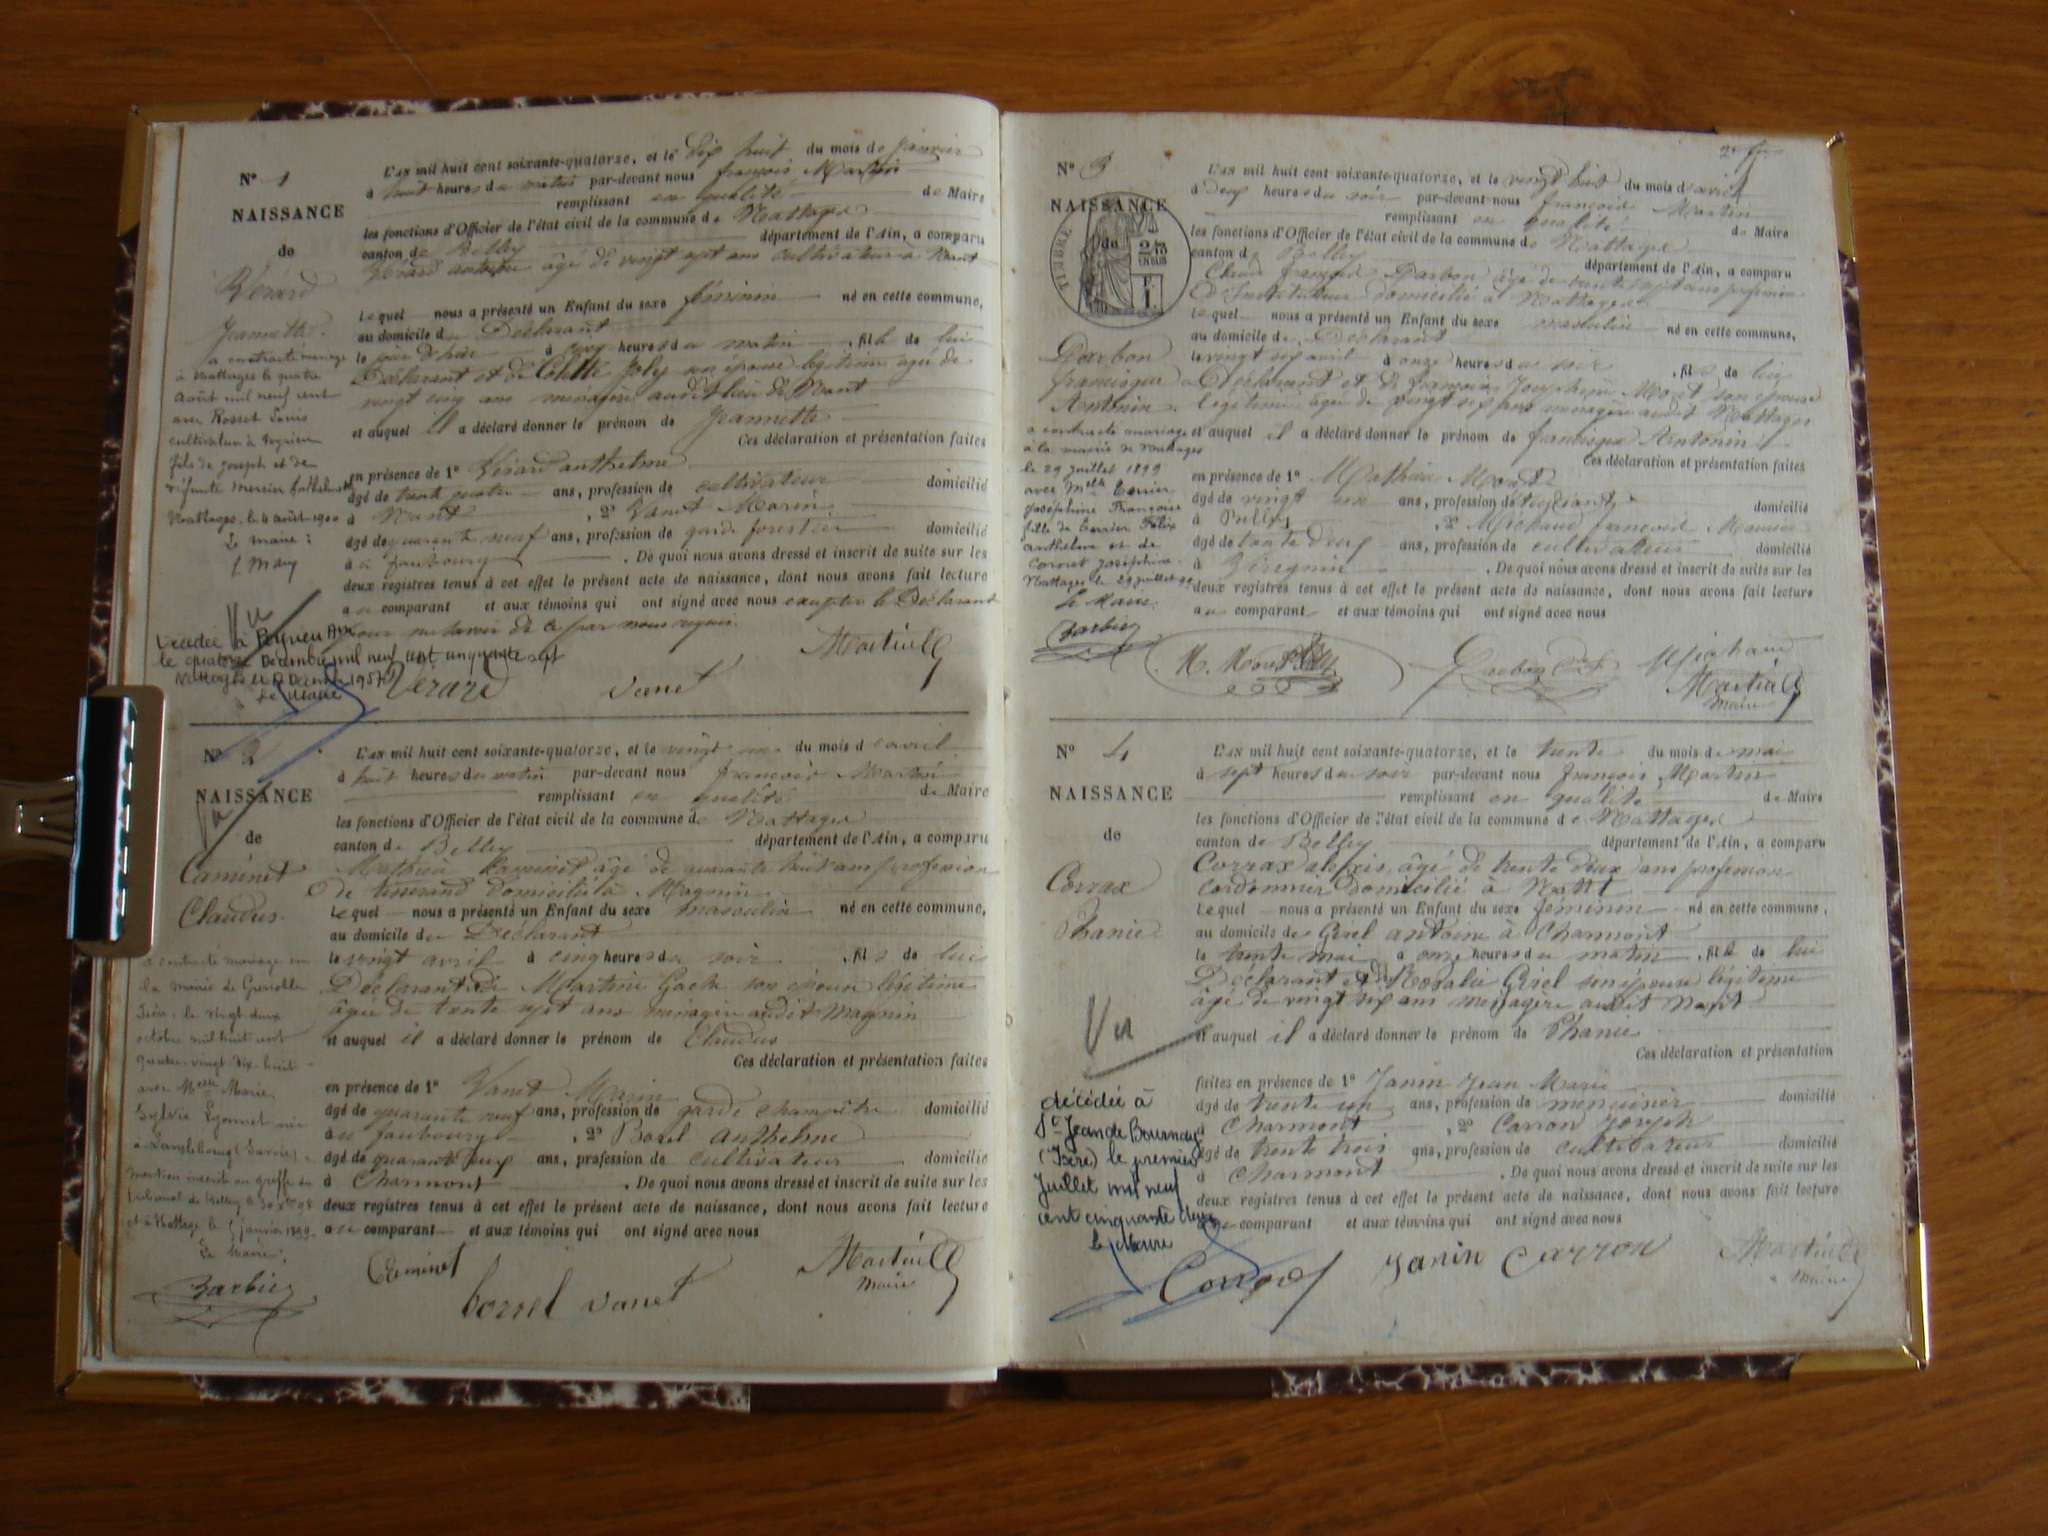 N° 1
NAISSANCE
de
Vérard
Jeannette.
a contracté mariage
à Nattages le quatre
août mil neuf cent
avec Rosset Louis
cultivateur à Peyrieu
fils de Joseph et de
défunte Mercier
Nattages, le 4 août 1900
Le maire :
Vu
décédée à Peyrieu Ain
le quatorze Décembre mil neuf cent cinquante sept
Le Maire
L'AN mil huit cent soixante-quatorze, et le dix huit du mois de janvier
à huit heures du matin par-devant nous françois Martin
remplissant en qualité de Maire
les fonctions d'Officier de l'état civil de la commune de Nattages
canton de Belley département de l'Ain, a comparu
Vérard antoine âgé de vingt sept ans cultivateur à Nant
Lequel nous a présenté un Enfant du sexe féminin né en cette commune,
au domicile du Déclarant
le jour d'hier à cinq heures du matin, fille de lui
Déclarant et de Colette Joly son épouse légitime âgée de
vingt cinq ans ménagère audit lieu de Nant
et auquel il a déclaré donner le prénom de Jeannette
Ces déclaration et présentation faites
en présence de 1° Vérard anthelme
âgé de trente quatre ans, profession de cultivateur domicilié
à Nant, 2° Vanet Marin
âgé de quarante neuf ans, profession de garde forestier domicilié
à faubourg. De quoi nous avons dressé et inscrit de suite sur les
deux registres tenus à cet effet le présent acte de naissance, dont nous avons fait lecture
au comparant et aux témoins qui ont signé avec nous excepter le Déclarant
pour ne savoir de ce par nous requis.
Verard vanet Martin
N° 2
NAISSANCE
de
Caminet
Claudus.
a contracté mariage en
la mairie de Grenoble
Isère, le vingt deux
octobre mil huit cent
quatre-vingt dix-huit
avec Melle Marie
Sylvie Lyonnet née
à Lanslebourg (Savoie)
mention inscrite au greffe du
tribunal de Belley le 30 Xbre 98
et à Nattages le 1 janvier 1899
Le Maire :
Barbier
L'AN mil huit cent soixante-quatorze, et le vingt un du mois d'avril
à huit heures du matin par-devant nous françois Martin
remplissant en qualité de Maire
les fonctions d'Officier de l'état civil de la commune de Nattages
canton de Belley département de l'Ain, a comparu
Mathieu Kaminet âgé de quarante huit ans profession
de tisserand domicilié à Magnin
Lequel nous a présenté un Enfant du sexe masculin né en cette commune,
au domicile du Déclarant
le vingt avril à cinq heures du soir, fils de lui
Déclarant et de Martine Gache son épouse légitime
âgée de trente sept ans ménagère audit Magnin
et auquel il a déclaré donner le prénom de Claudus
Ces déclaration et présentation faites
en présence de 1° Vanet Marin
âgé de quarante neuf ans, profession de garde champêtre domicilié
au faubourg, 2° Borel anthelme
âgé de quarante deux ans, profession de cultivateur domicilié
à Charmont. De quoi nous avons dressé et inscrit de suite sur les
deux registres tenus à cet effet le présent acte de naissance, dont nous avons fait lecture
au comparant et aux témoins qui ont signé avec nous
Caminet borrel vanet Martin
Maire
N° 3
NAISSANCE
de
TIMBRE
2/10
EN SUS
F
1
Darbon
francisque
Antonin.
a contracté mariage
à la mairie de Nattages
le 29 Juillet 1899
avec Melle Terrier
Joséphine Françoise
fille de Terrier Félix
anthelme et de
Cornet Joséphine.
Le Maire.
Barbier
L'AN mil huit cent soixante-quatorze, et le vingt huit du mois d'avril
à deux heures du soir par-devant nous françois Martin
remplissant en qualité de Maire
les fonctions d'Officier de l'état civil de la commune de Nattages
canton de Belley département de l'Ain, a comparu
Claude françois Darbon âgé de trente sept ans profession
d'Instituteur domicilié à Nattages
Lequel nous a présenté un Enfant du sexe masculin né en cette commune,
au domicile du Déclarant
le vingt six avril à onze heures du soir, fils de lui
Déclarant et de françoise Joséphine Moret son épouse
légitime âgée de vingt six ans ménagère audit Nattages
et auquel il a déclaré donner le prénom de francisque Antonin
Ces déclaration et présentation faites
en présence de 1° Mathieu
âgé de vingt six ans, profession de domicilié
à, 2° Michaud françois
âgé de trente deux ans, profession de cultivateur domicilié
à. De quoi nous avons dressé et inscrit de suite sur les
deux registres tenus à cet effet le présent acte de naissance, dont nous avons fait lecture
au comparant et aux témoins qui ont signé avec nous
Michaud
Maire
N° 4
NAISSANCE
de
Corrax
Phanie
Vu
décédée à
St Jean de Bournay
(Isère) le premier
Juillet mil neuf
cent cinquante deux
Le Maire
L'AN mil huit cent soixante-quatorze, et le trente du mois de mai
à sept heures du soir par-devant nous françois Martin
remplissant en qualité de Maire
les fonctions d'Officier de l'état civil de la commune de Nattages
canton de Belley département de l'Ain, a comparu
Corrax alexis, âgé de trente deux ans profession
cordonnier domicilié à Nant
Lequel nous a présenté un Enfant du sexe féminin né en cette commune,
au domicile de Girel antoine à Charmont
le trente mai à onze heures du matin, fille de lui
Déclarant et de Rosalie Girel son épouse légitime
âgée de vingt six ans ménagère audit Nant
et auquel il a déclaré donner le prénom de Phanie
Ces déclaration et présentation
faites en présence de 1° Janin Jean Marie
âgé de trente un ans, profession de menuisier domicilié
à Charmont, 2° Carron Joseph
âgé de trente trois ans, profession de cultivateur domicilié
à Charmont. De quoi nous avons dressé et inscrit de suite sur les
deux registres tenus à cet effet le présent acte de naissance, dont nous avons fait lecture
au comparant et aux témoins qui ont signé avec nous
Corrax Janin Carron Martin
Maire